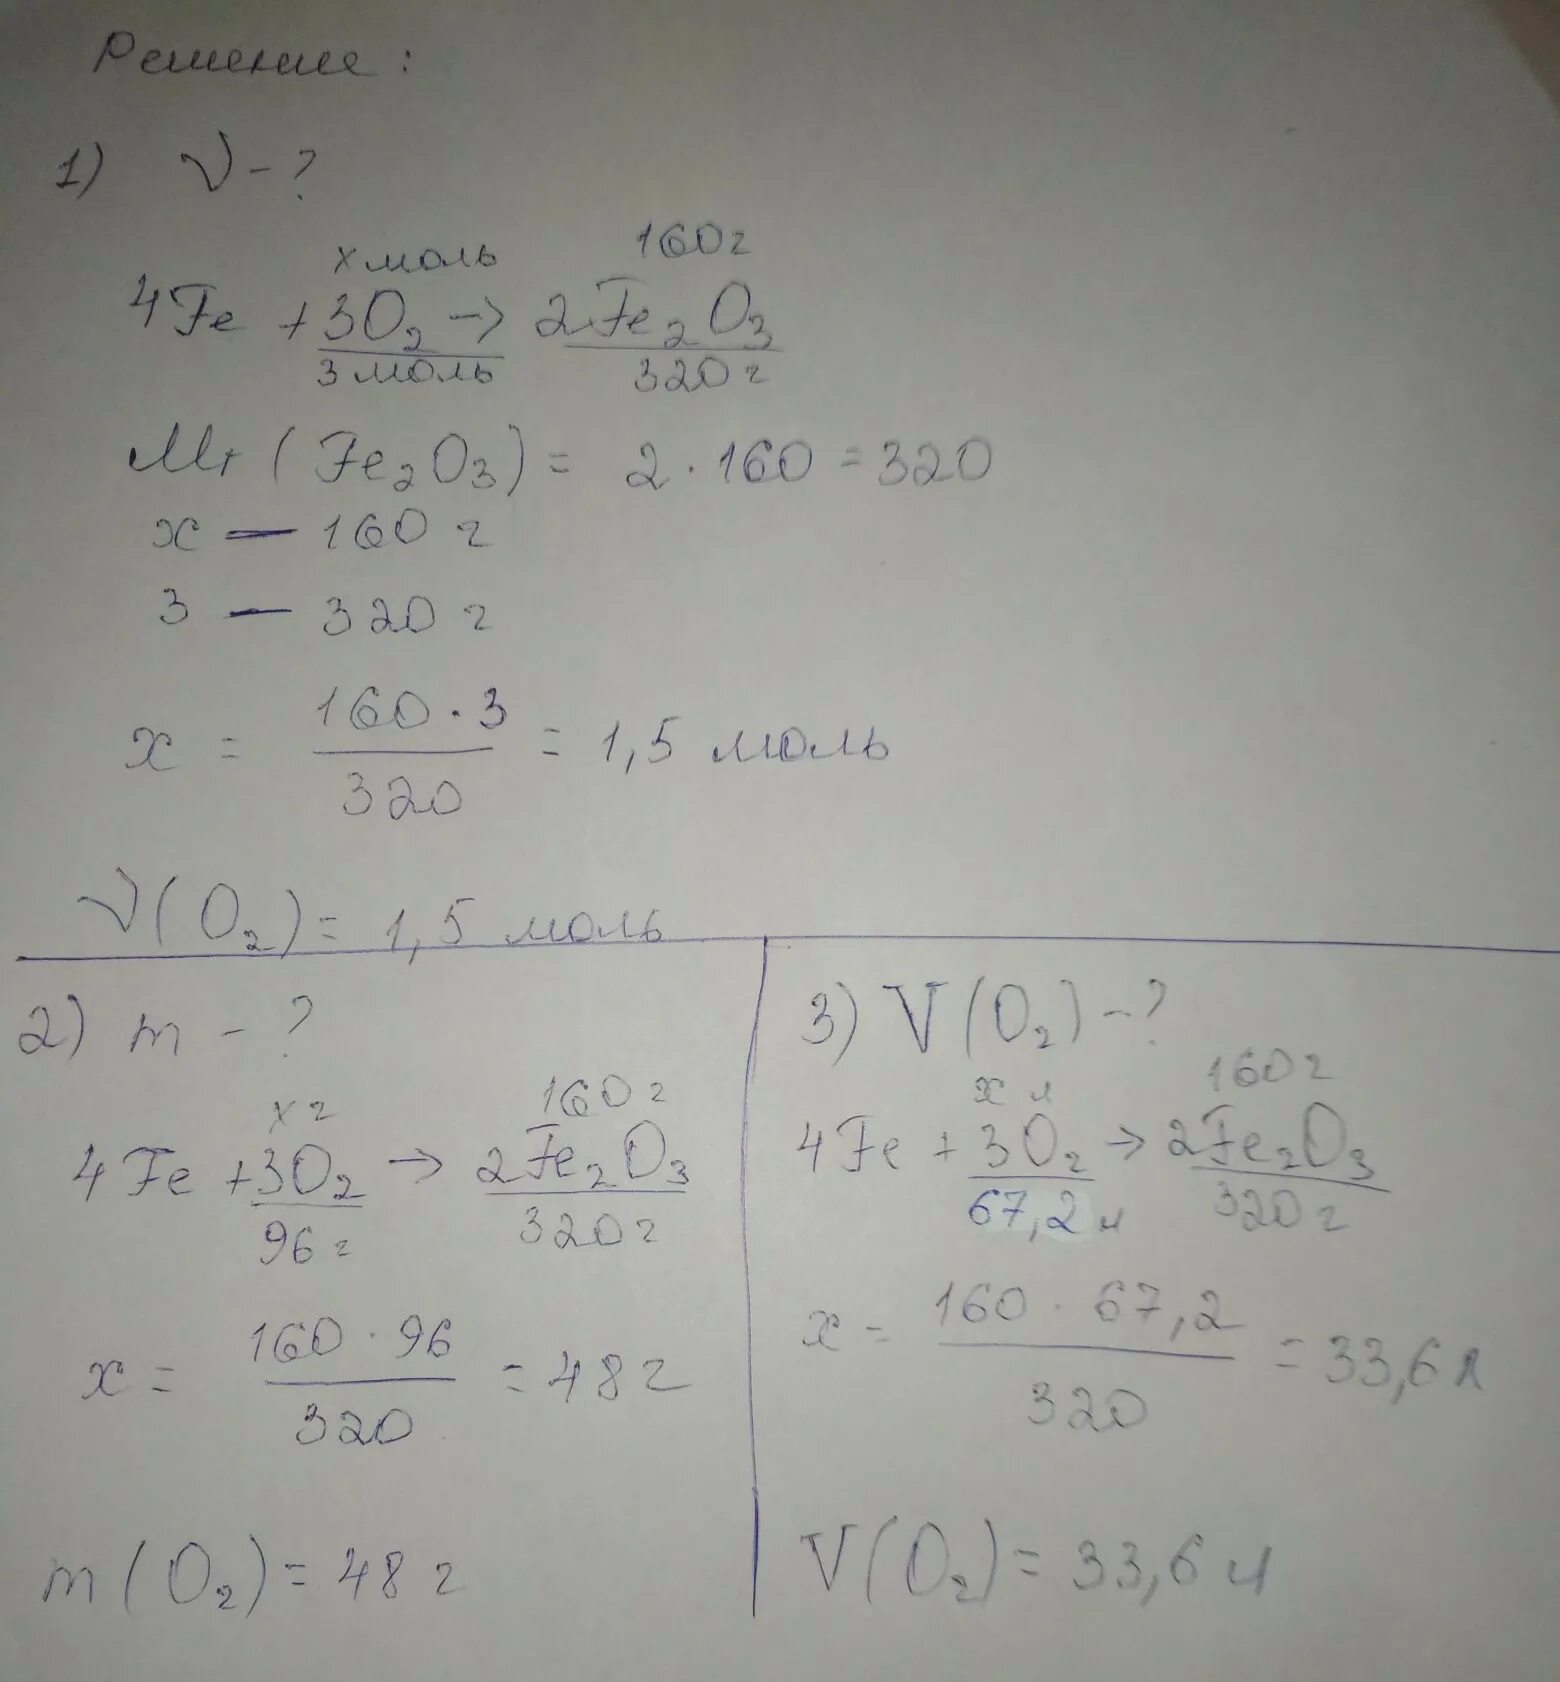 Решение:
1) ν - ?
x моль 160 г
4Fe + 3O₂ → 2Fe₂O₃
3 моль 320 г
Mr (Fe₂O₃) = 2 · 160 = 320
x — 160 г
3 — 320 г
160 · 3
x = = 1,5 моль
320
ν(O₂) = 1,5 моль
2) m - ?
x г 160 г
4Fe + 3O₂ → 2Fe₂O₃
96 г 320 г
160 · 96
x = = 48 г
320
m (O₂) = 48 г
3) V (O₂) - ?
x л 160 г
4Fe + 3O₂ → 2Fe₂O₃
67,2 л 320 г
160 · 67,2
x = = 33,6 л
320
V(O₂) = 33,6 л